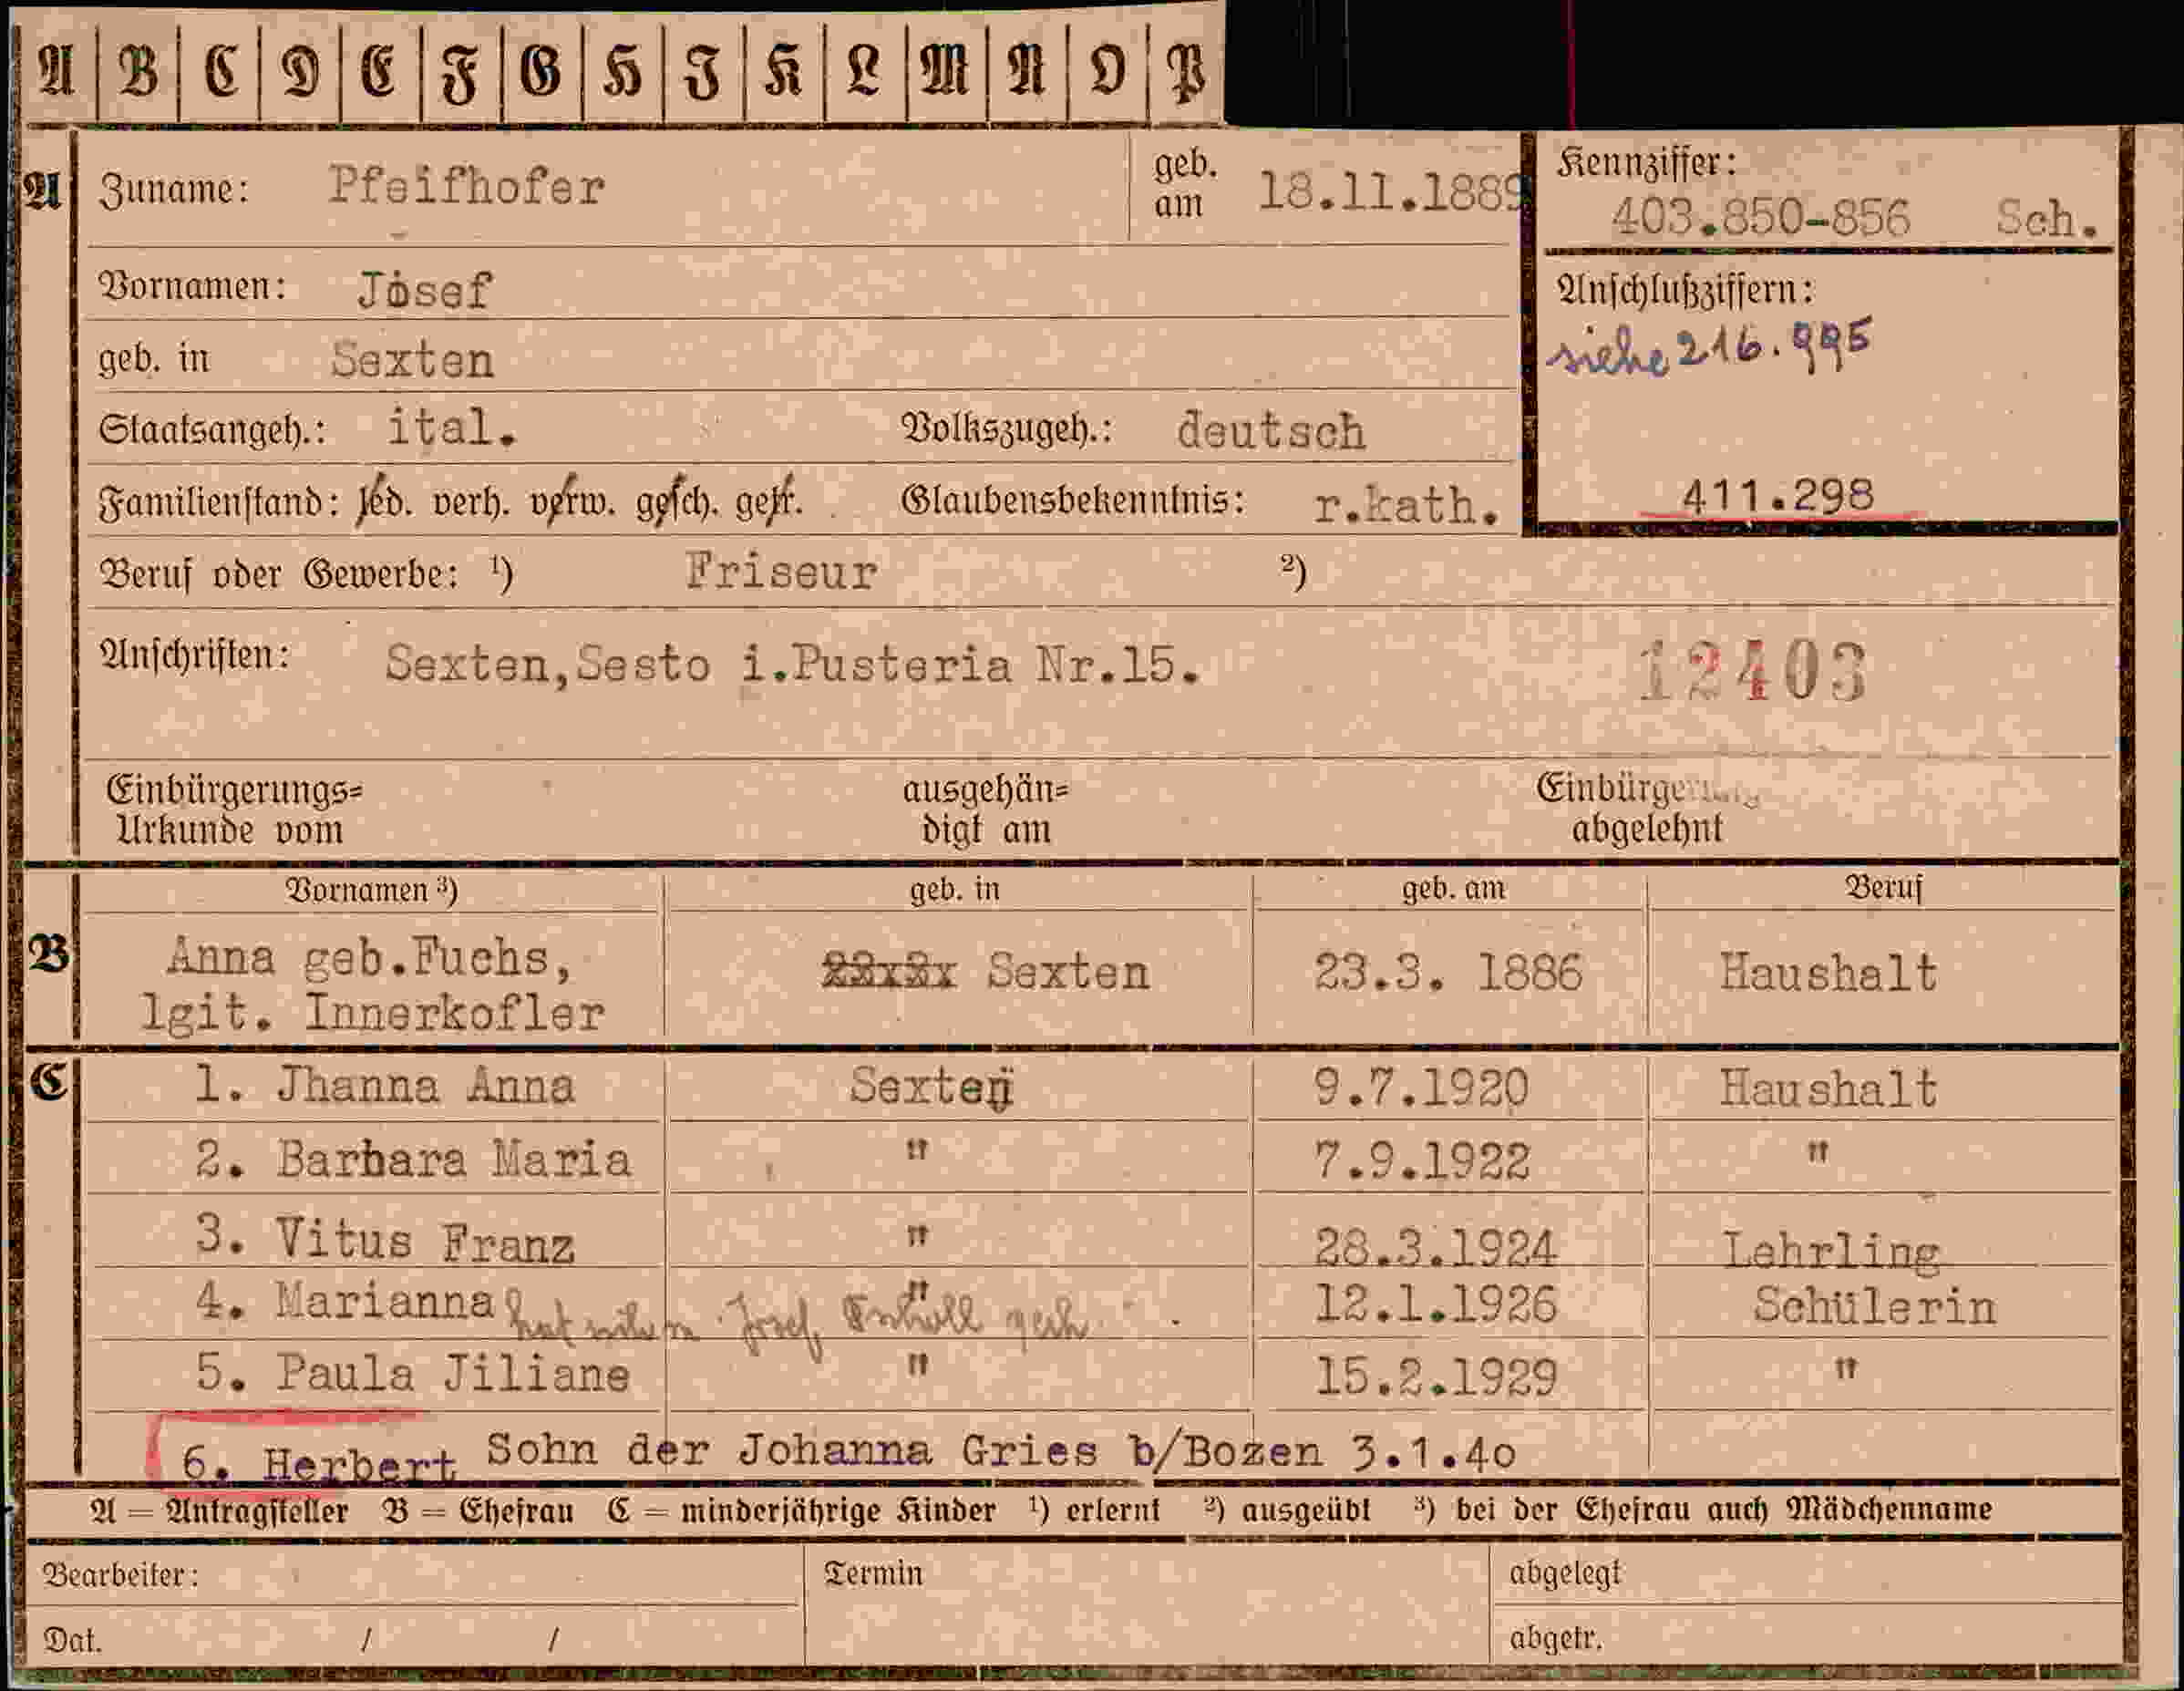 A B C D E F G H I K L M N O P
A Zuname: Pfeifhofer geb. am 18.11.1889
Kennziffer:
403.850-856 Sch.
Vornamen: Josef
Anschlußziffern:
siehe 216.995
geb. in Sexten
Staatsangeh.: ital. Volkszugeh.: deutsch
411.298
Familienstand: led. verh. verw. gesch. getr. Glaubensbekenntnis: r.kath.
Beruf oder Gewerbe: ¹) Friseur ²)
Anschriften: Sexten,Sesto i.Pusteria Nr.15. 12403
Einbürgerungs= ausgehän= Einbürgerung
Urkunde vom digt am abgelehnt
Vornamen ³) geb. in geb. am Beruf
B Anna geb.Fuchs, Sexten 23.3. 1886 Haushalt
lgit. Innerkofler
C 1. Jhanna Anna Sexten 9.7.1920 Haushalt
2. Barbara Maria " 7.9.1922 "
3. Vitus Franz " 28.3.1924 Lehrling
4. Marianna " 12.1.1926 Schülerin
hat Josef
5. Paula Jiliane " 15.2.1929 "
6. Herbert Sohn der Johanna Gries b/Bozen 3.1.40
A = Antragsteller B = Ehefrau C = minderjährige Kinder ¹) erlernt ²) ausgeübt ³) bei der Ehefrau auch Mädchenname
Bearbeiter: Termin abgelegt
Dat. / / abgetr.